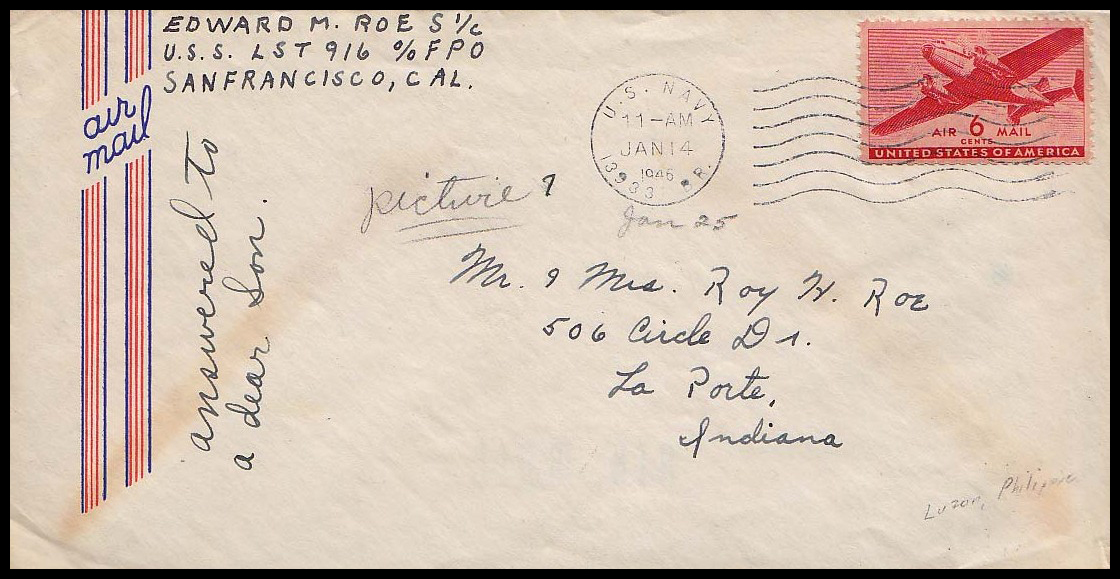 EDWARD M. ROE S 1/c
U.S.S. LST 916 c/o FPO
SANFRANCISCO, CAL.
air
mail
answered to
a dear Son.
picture ?
U.S. NAVY
11-AM
JAN 14
1946
13933 BR.
Jan 25
AIR 6 MAIL
CENTS
UNITED STATES OF AMERICA
Mr. & Mrs. Roy W. Roe
506 Circle Dr.
La Porte,
Indiana
Luzon, Philippine